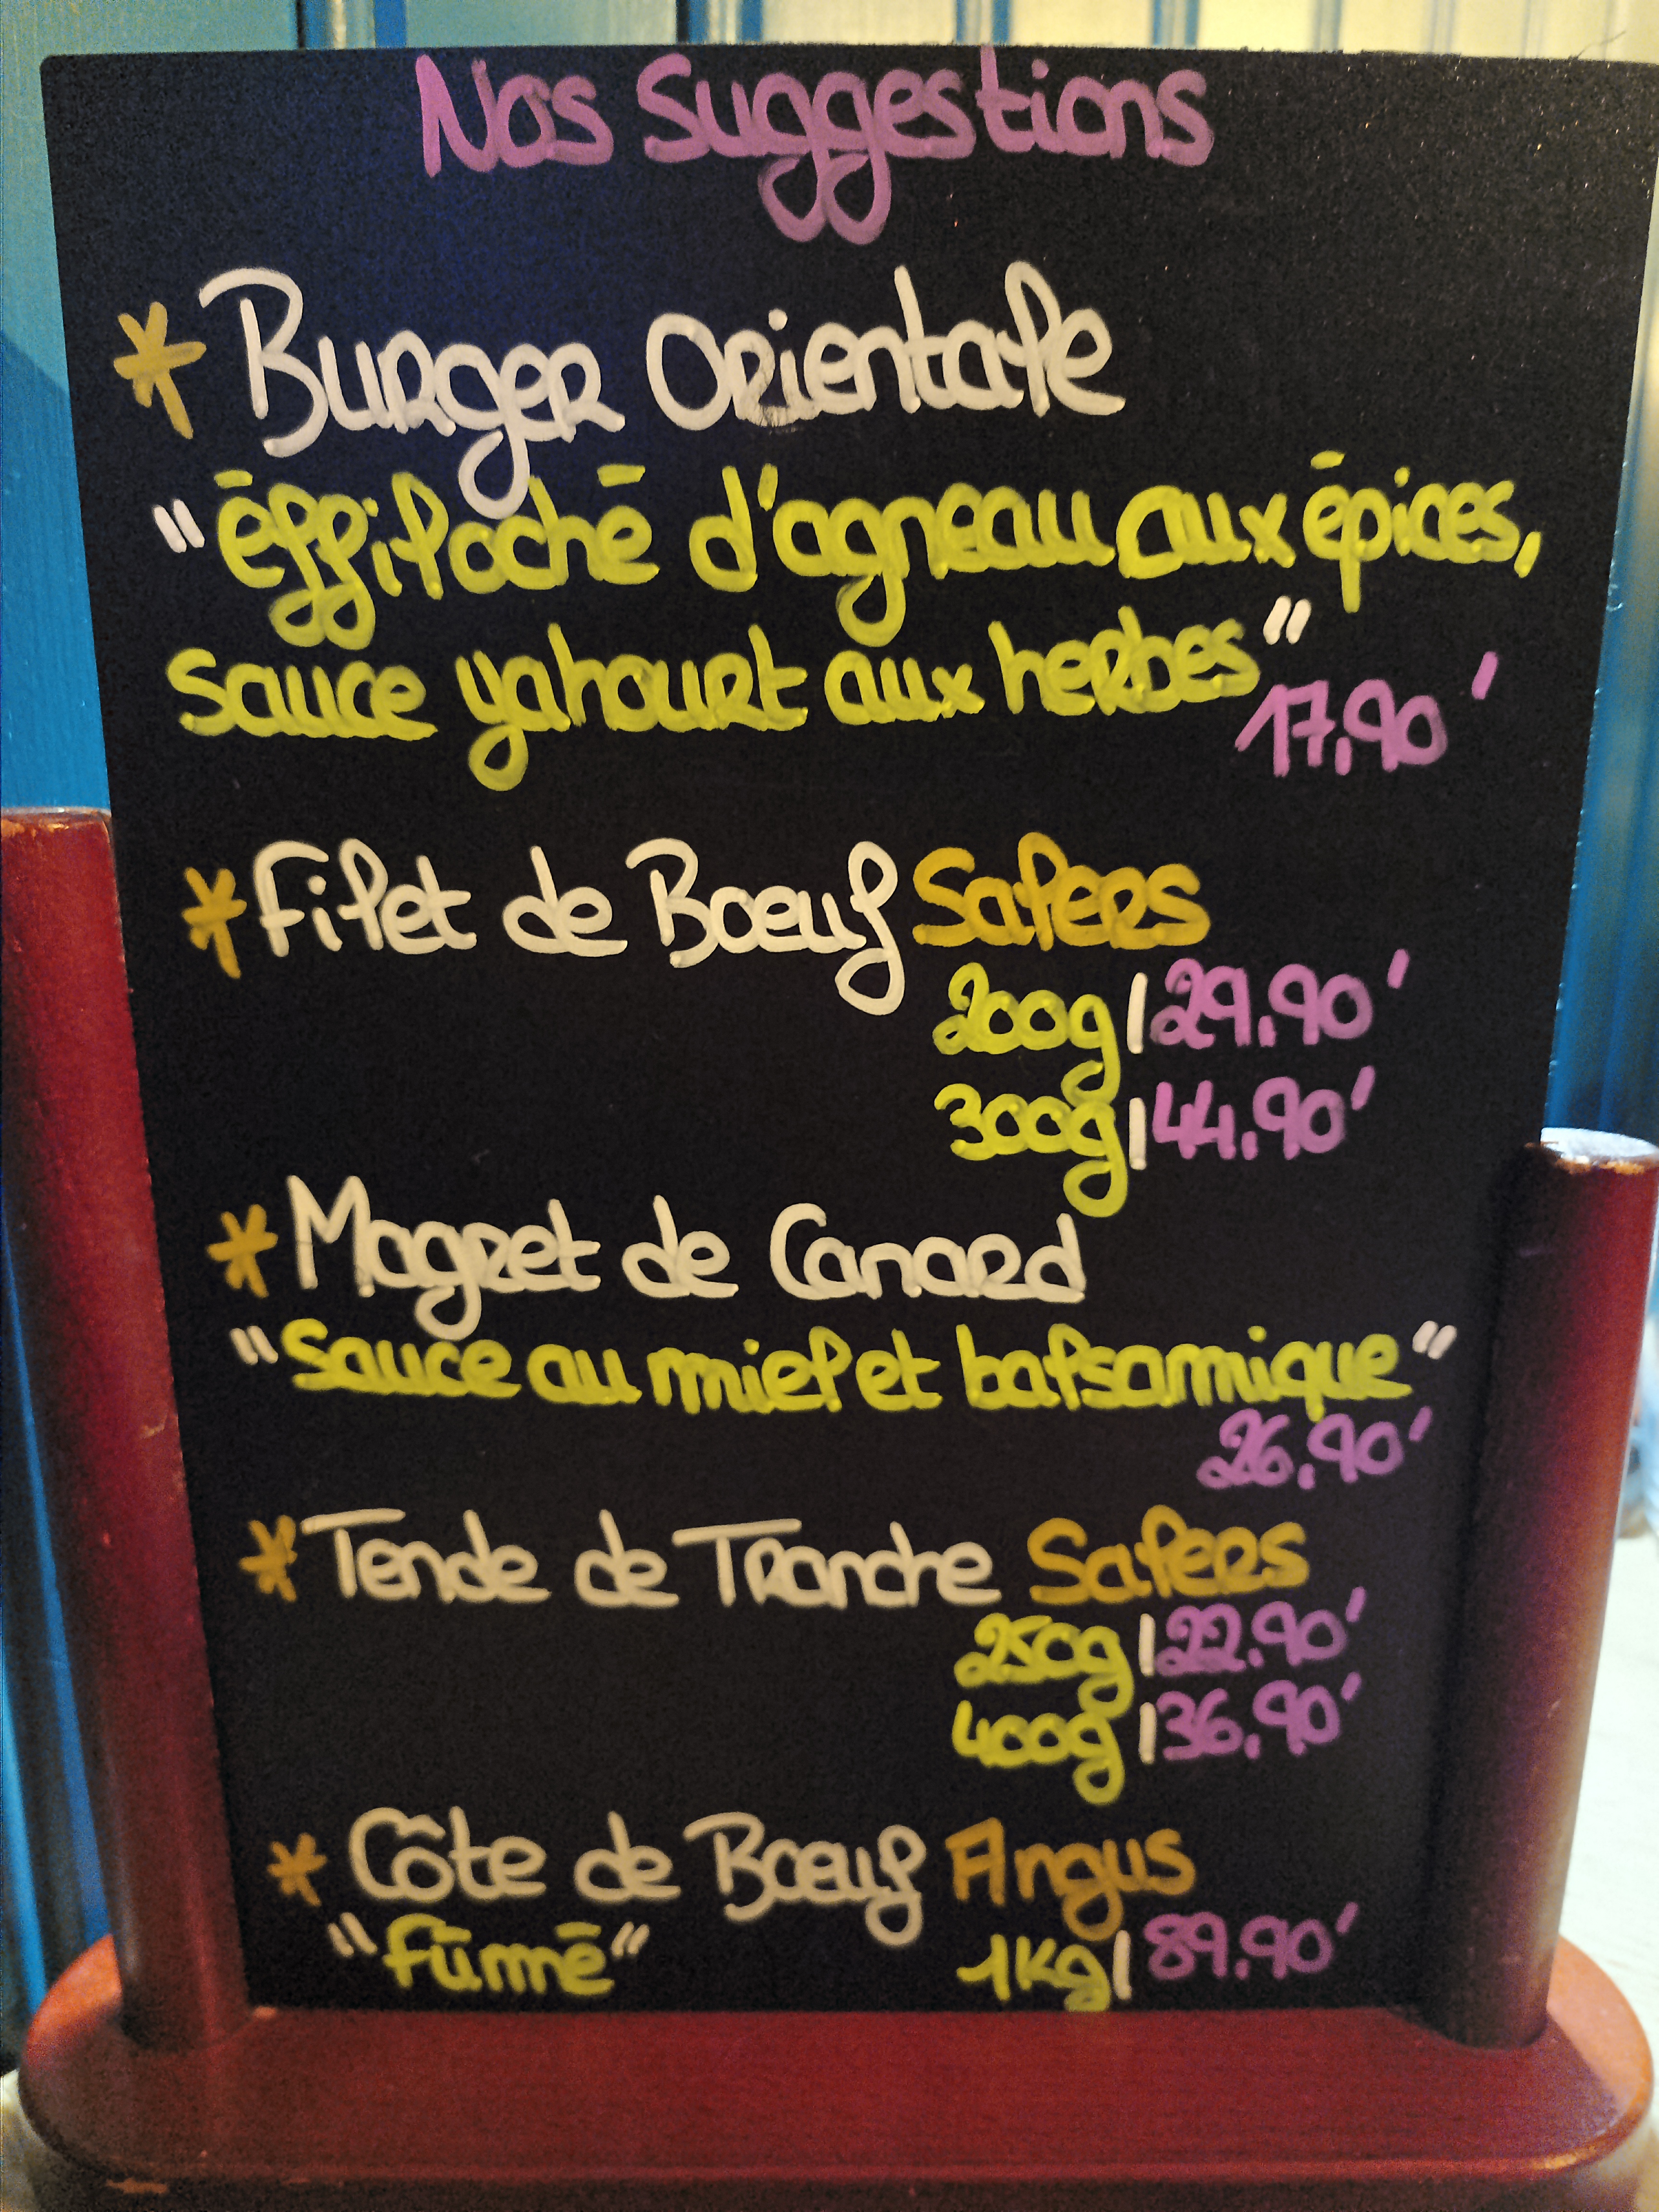 Nos Suggestions
* Burger Orientale
"éffiloché d'agneau aux épices,
sauce yahourt aux herbes"
17,90'
* Filet de Boeuf Salers
200g | 29.90'
300g | 44.90'
* Magret de Canard
"Sauce au miel et balsamique"
26.90'
* Tende de Tranche Salers
250g | 22.90'
400g | 36.90'
* Côte de Boeuf Angus
"fûmé" 1Kg | 89.90'